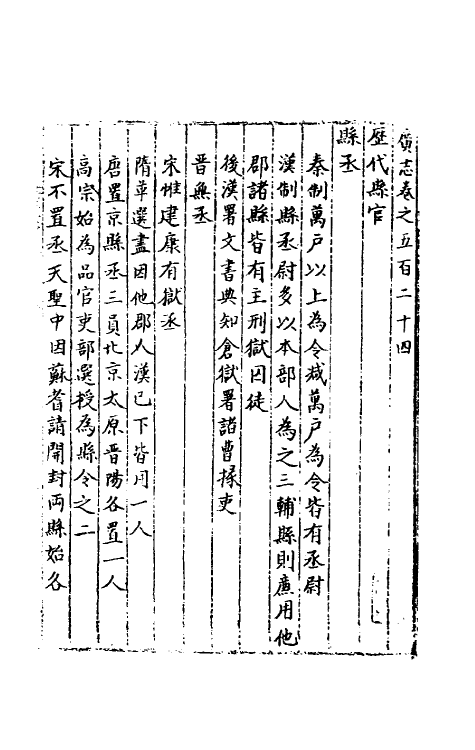 廣志卷之五百二十四
歷代縣官
縣丞
秦制萬戶以上為令减萬戶為令皆有丞尉
漢制縣丞尉多以本部人為之三輔縣則廣用他
郡諸縣皆有主刑獄囚徒
後漢署文書典知倉獄署諸曹掾吏
晉無丞
宋惟建康有獄丞
隋革選盡因他郡人漢已下皆用一人
唐置京縣丞三員北京太原晉陽各置一人
高宗始為品官吏部選授為縣令之二
宋不置丞天聖中因蘇耆請開封兩縣始各